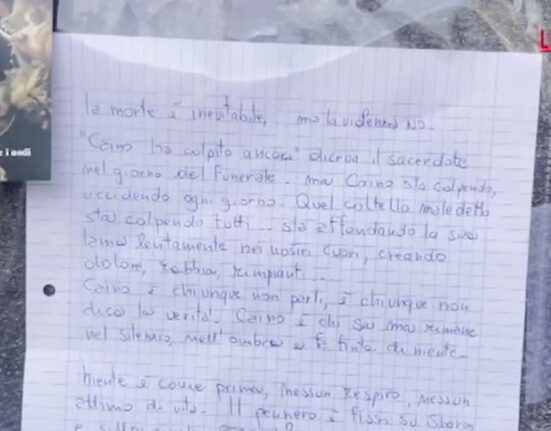 L
e i nodi
la morte è inevitabile, ma la violenza NO.
"Caino ha colpito ancora" diceva il sacerdote
nel giorno del funerale. ma Caino sta colpendo,
uccidendo ogni giorno. Quel coltello maledetto
sta colpendo tutti... sta affondando la sua
lama lentamente nei nostri cuori, creando
dolore, rabbia, rimpianti...
Caino è chiunque non parli, è chiunque non
dica la verità. Caino è chi sa ma rimane
nel silenzio, nell'ombra e fa finta di niente.
niente è come prima, nessun respiro, nessun
attimo di vita. Il pensiero è fisso su Sharon